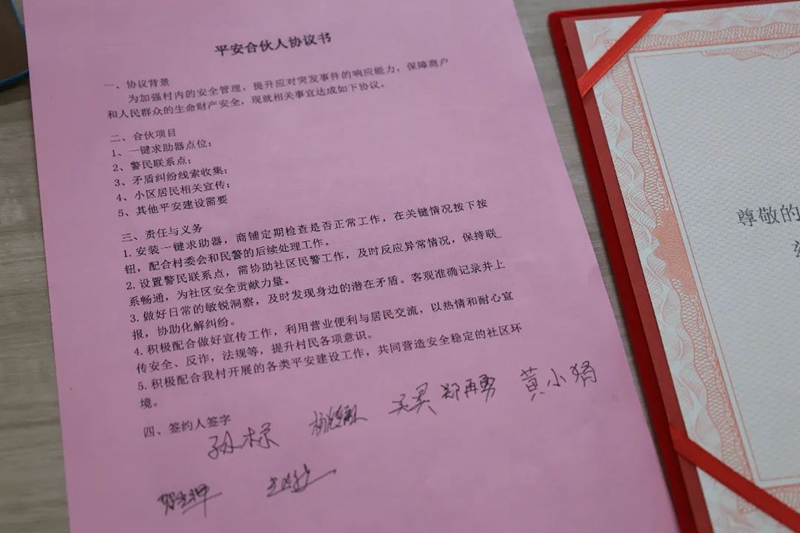 平安合伙人协议书
一、协议背景
为加强村内的安全管理，提升应对突发事件的响应能力，保障商户
和人民群众的生命财产安全，现就相关事宜达成如下协议。
二、合伙项目
1、一键求助器点位；
2、警民联系点；
3、矛盾纠纷线索收集；
4、小区居民相关宣传；
5、其他平安建设需要
三、责任与义务
1.安装一键求助器，商铺定期检查是否正常工作，在关键情况按下按
钮，配合村委会和民警的后续处理工作。
2.设置警民联系点，需协助社区民警工作，及时反应异常情况，保持联
系畅通，为社区安全贡献力量。
3.做好日常的敏锐洞察，及时发现身边的潜在矛盾。客观准确记录并上
报，协助化解纠纷。
4.积极配合做好宣传工作，利用营业便利与居民交流，以热情和耐心宣
传安全、反诈，法规等，提升村民各项意识。
5.积极配合我村开展的各类平安建设工作，共同营造安全稳定的社区环
境。
四、签约人签字
郑再勇 黄小娟
尊敬的